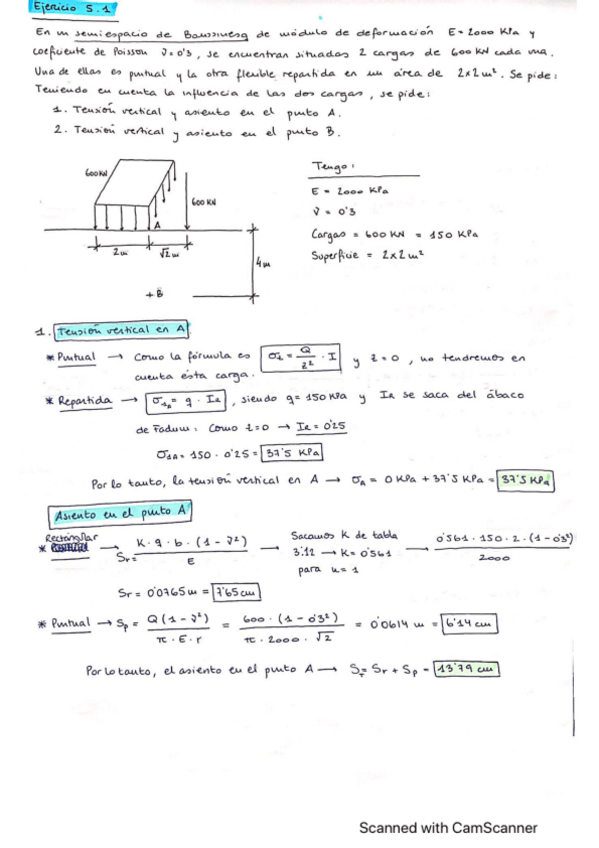 Ejercicio 5.1
En un semiespacio de Boussinesq de módulo de deformación E=2000 KPa y
coeficiente de Poisson ν=0'3, se encuentran situados 2 cargas de 600 KN cada una.
Una de ellas es puntual y la otra flexible repartida en un área de 2x2 m². Se pide:
Teniendo en cuenta la influencia de las dos cargas, se pide:
1. Tensión vertical y asiento en el punto A.
2. Tensión vertical y asiento en el punto B.
Tengo:
600 KN
E = 2000 KPa
600 KN
ν = 0'3
A
Cargas = 600 KN = 150 KPa
2m
√2 m
Superficie = 2x2 m²
4m
+ B
1. Tensión vertical en A
* Puntual → Como la fórmula es σz = Q/z² · I y z=0, no tendremos en
cuenta ésta carga.
* Repartida → σzA = q · IR, siendo q=150 KPa y IR se saca del ábaco
de Fadum: Como z=0 → IR = 0'25
σzA = 150 · 0'25 = 37'5 KPa
Por lo tanto, la tensión vertical en A → σA = 0 KPa + 37'5 KPa = 37'5 KPa
Asiento en el punto A
* Rectangular → Sr = K · q · b · (1 - ν²) / E → Sacamos K de tabla 3.12 → K=0'561 para n=1 → 0'561 · 150 · 2 · (1 - 0'3²) / 2000
Sr = 0'0765 m = 7'65 cm
* Puntual → Sp = Q (1 - ν²) / π · E · r = 600 · (1 - 0'3²) / π · 2000 · √2 = 0'0614 m = 6'14 cm
Por lo tanto, el asiento en el punto A → ST = Sr + Sp = 13'79 cm
Scanned with CamScanner